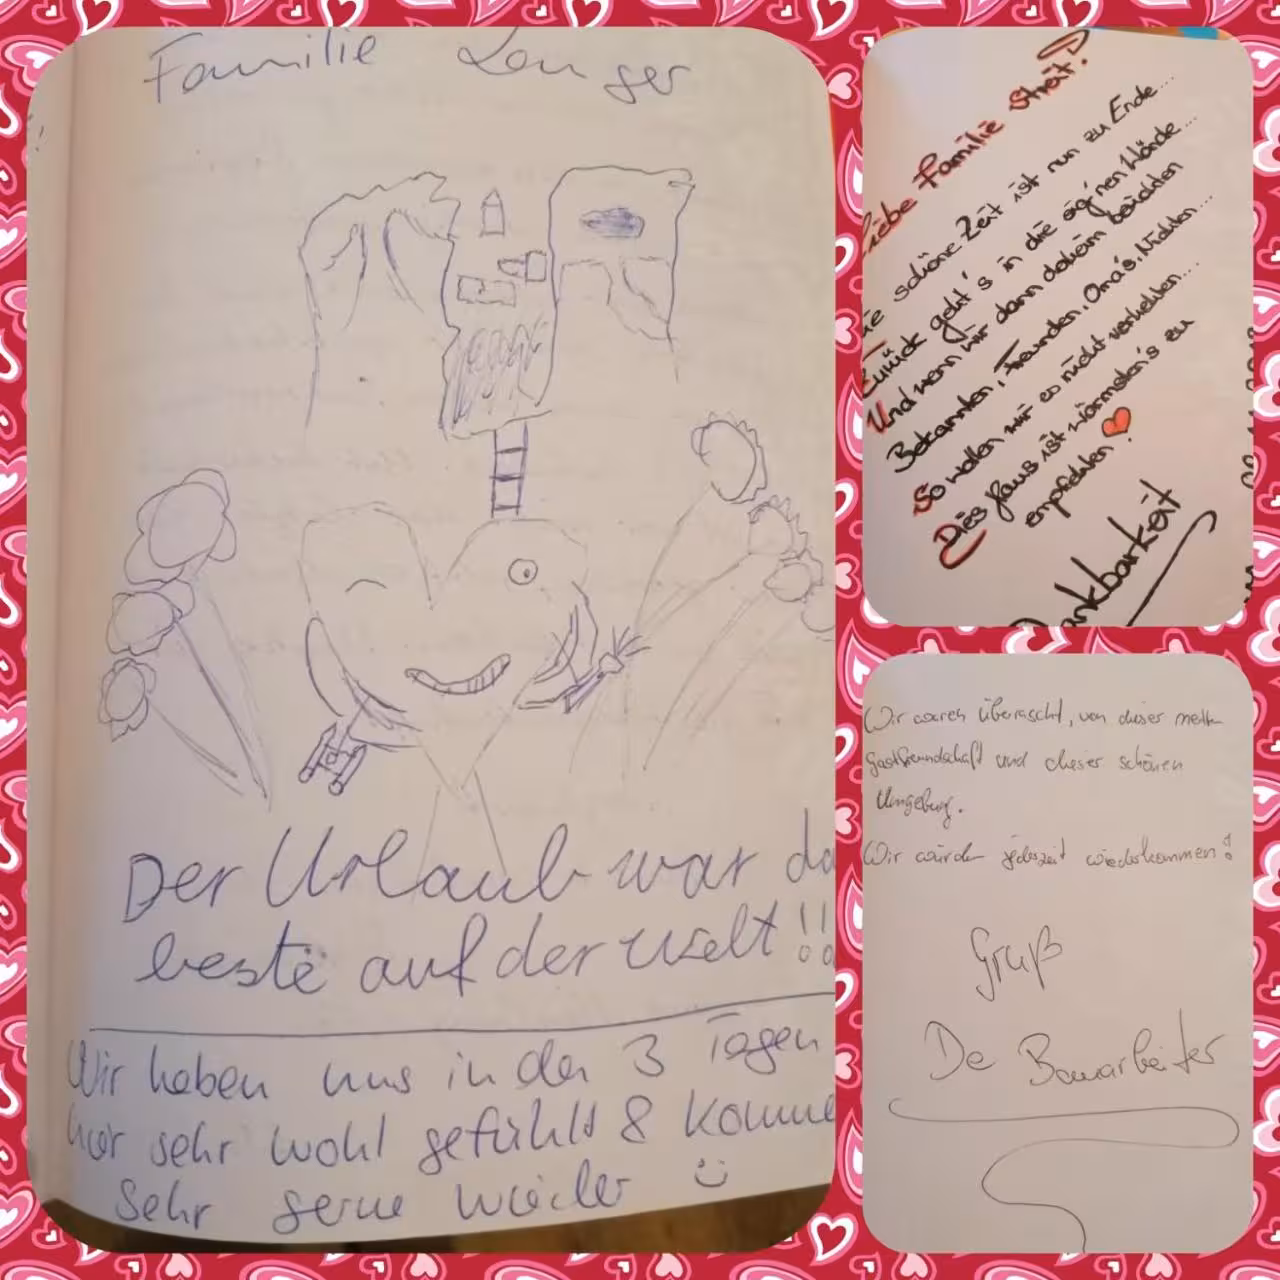 Familie Langer
Der Urlaub war da
beste auf der Welt!!
Wir haben uns in den 3 Tagen
hier sehr wohl gefühlt & komme
sehr gerne wieder
Liebe Familie Streit!
ie schöne Zeit ist nun zu Ende...
Zurück geht's in die eig'nen Wände...
Und wenn wir dann daheim berichten
Bekannten, Freunden, Oma's, Nichten...
So wollen wir es nicht verfehlen...
Dies Haus ist wärmsten's zu
empfehlen!
Dankbarkeit
Wir waren überrascht, von dieser netten
Gastfreundschaft und dieser schönen
Umgebung.
Wir würden jederzeit wiederkommen!
Gruß
De Bauarbeiter